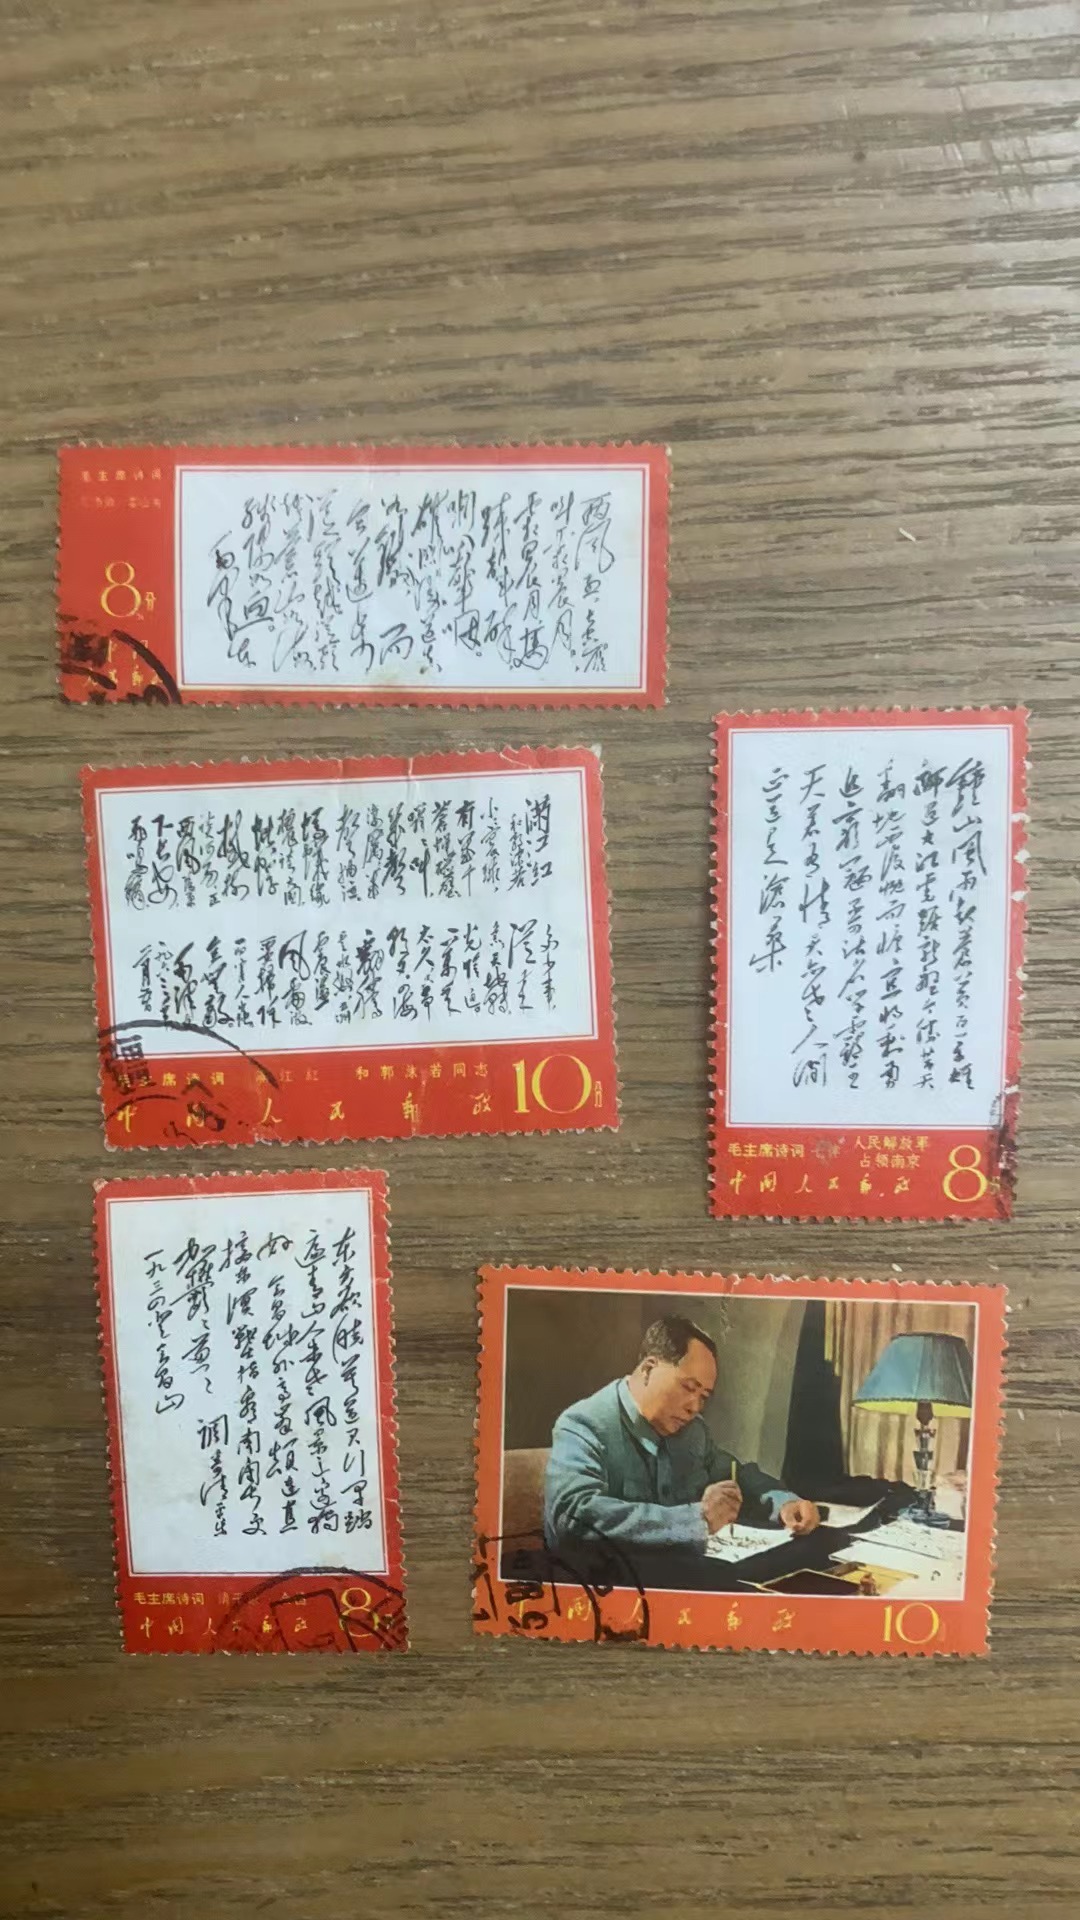 毛主席诗词
8分
中国
人民邮政
西风烈，长空雁
叫霜晨月。
霜晨月，马
蹄声碎，
喇叭声咽。
雄关漫道真
如铁，而
今迈步
从头越，从头越，
苍山如海，
残阳如血。
毛泽东
满江红
和郭沫若
小小寰球，
有几个
苍蝇碰壁。
嗡嗡叫，
几声
凄厉，几声
抽泣。
蚂蚁缘
槐夸大国，
蚍蜉
撼树
谈何易。正
西风落叶
下长安，
飞鸣镝。
多少事，
从来急；
天地转，
光阴迫。
一万年
太久，只争
朝夕。四海
翻腾
云水怒，五洲
震荡
风雷激。
要扫除
一切害人虫，
全无敌。
毛泽东
一九六三年
二月五日
毛主席诗词 满江红 和郭沫若同志
中国人民邮政 10分
钟山风雨起苍黄百万雄
师过大江虎踞龙盘今胜昔天
翻地覆慨而慷宜将剩勇
追穷寇不可沽名学霸王
天若有情天亦老人间
正道是沧桑
毛主席诗词 七律 人民解放军
占领南京
中国人民邮政 8分
东方欲晓莫道君行早踏
遍青山人未老风景这边独
好 会昌城外高峰颠连直
接东溟战士指看南粤更
加郁郁葱葱 调寄清平乐
一九三四年登会昌山
毛主席诗词 清平乐 会昌
中国人民邮政 8分
中国人民邮政 10